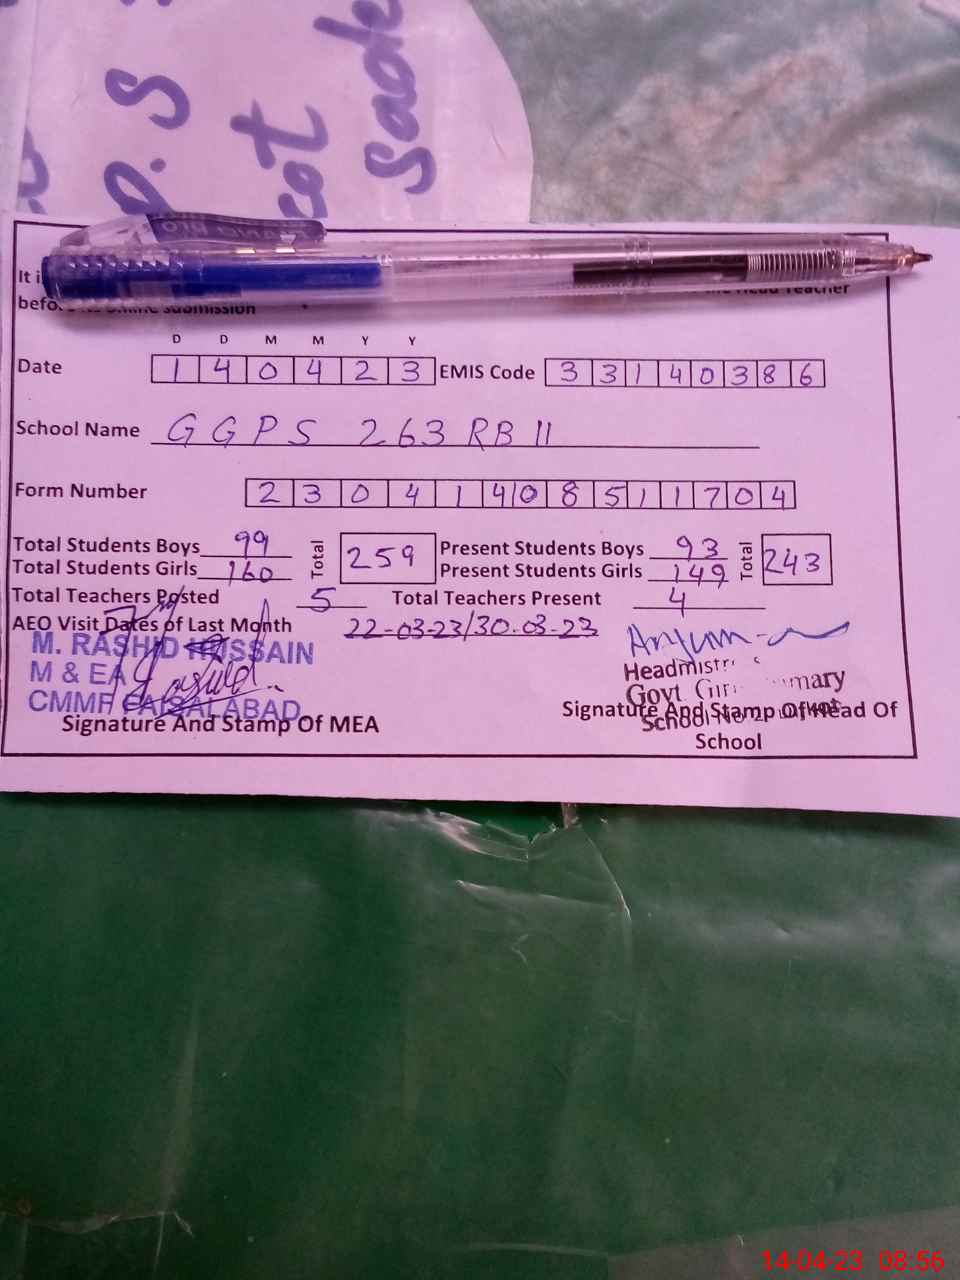 P.S
cot
Sade
PIANO
It i
Head Teacher
before its online submission
D D M M Y Y
Date 1 4 0 4 2 3 EMIS Code 3 3 1 4 0 3 8 6
School Name G G P S 263 RB II
Form Number 2 3 0 4 1 4 0 8 5 1 1 7 0 4
Total Students Boys 99 Total 259 Present Students Boys 93 Total 243
Total Students Girls 160 Present Students Girls 149
Total Teachers Posted 5 Total Teachers Present 4
AEO Visit Dates of Last Month 22-03-23/30-03-23
M. RASHID HUSSAIN
M & EA
CMMF FAISALABAD
Signature And Stamp Of MEA
Anjum
Headmistr
Govt Gir mary
School No 2
Signature And Stamp Of Head Of
School
14-04-23 08:56